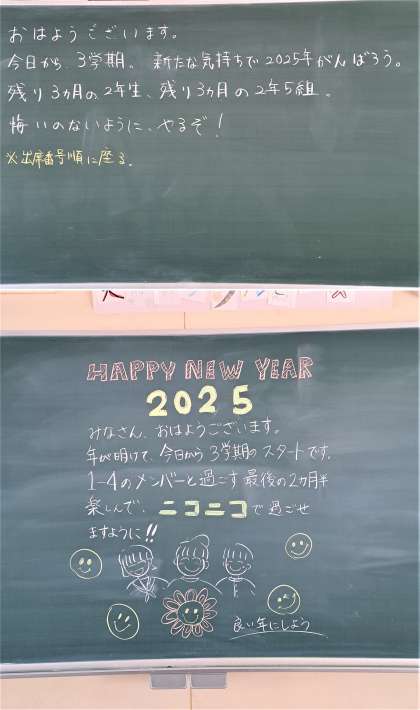 おはようございます。
今日から、3学期。新たな気持ちで2025年がんばろう。
残り3ヵ月の2年生、残り3ヵ月の2年5組。
悔いのないように、やるぞ！
※出席番号順に座る。
HAPPY NEW YEAR
2025
みなさん、おはようございます。
年が明けて、今日から3学期のスタートです。
1-4のメンバーと過ごす最後の2ヵ月半
楽しんで、ニコニコで過ごせ
ますように!!
良い年にしよう